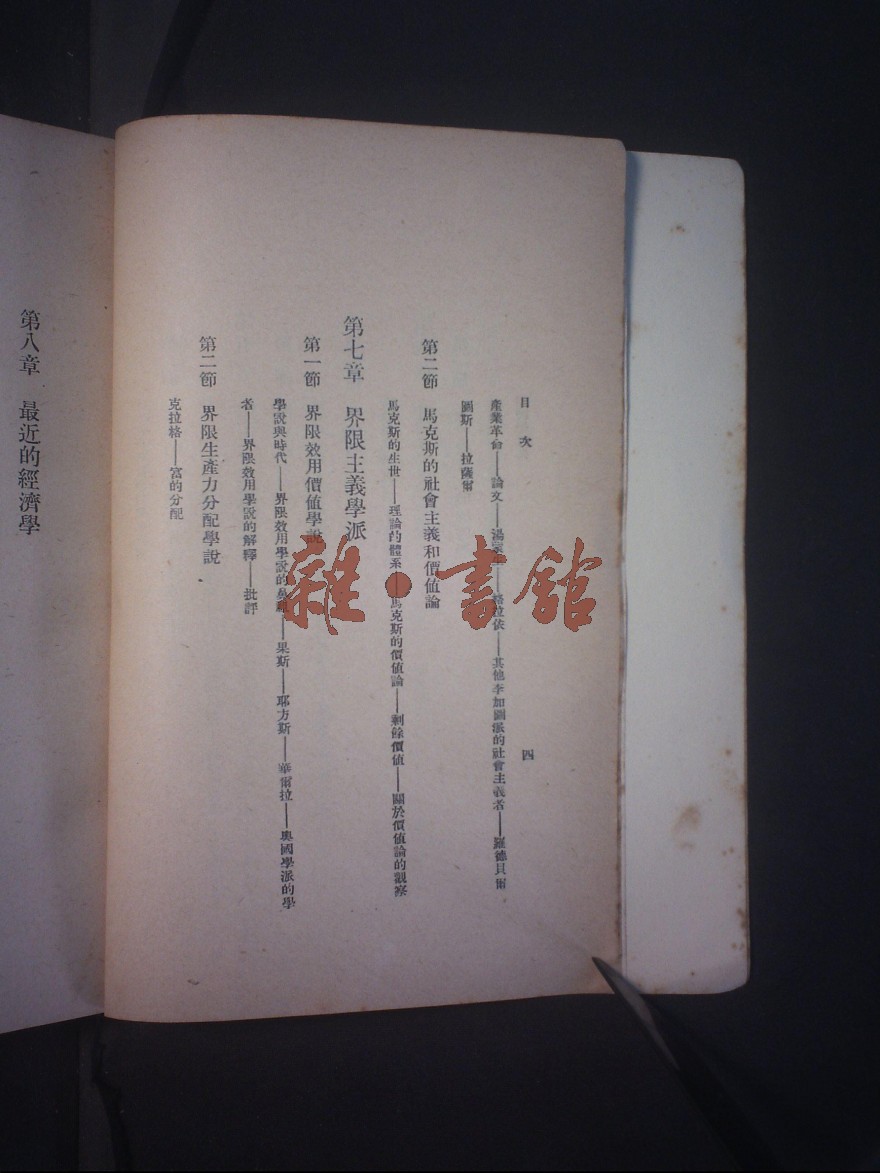 目次
四
產業革命——論文——湯　　——　拉依——其他李加圖派的社會主義者——羅德貝爾
圖斯——拉薩爾
第二節　馬克斯的社會主義和價値論
馬克斯的生世——理論的體系——馬克斯的價値論——剩餘價値——關於價値論的觀察
第七章　界限主義學派
第一節　界限效用價値學說
學說與時代——界限效用學說的　　——果斯——耶方斯——華爾拉——奧國學派的學
者——界限效用學說的解釋——批評
第二節　界限生產力分配學說
克拉格——富的分配
第八章　最近的經濟學
雜·書館